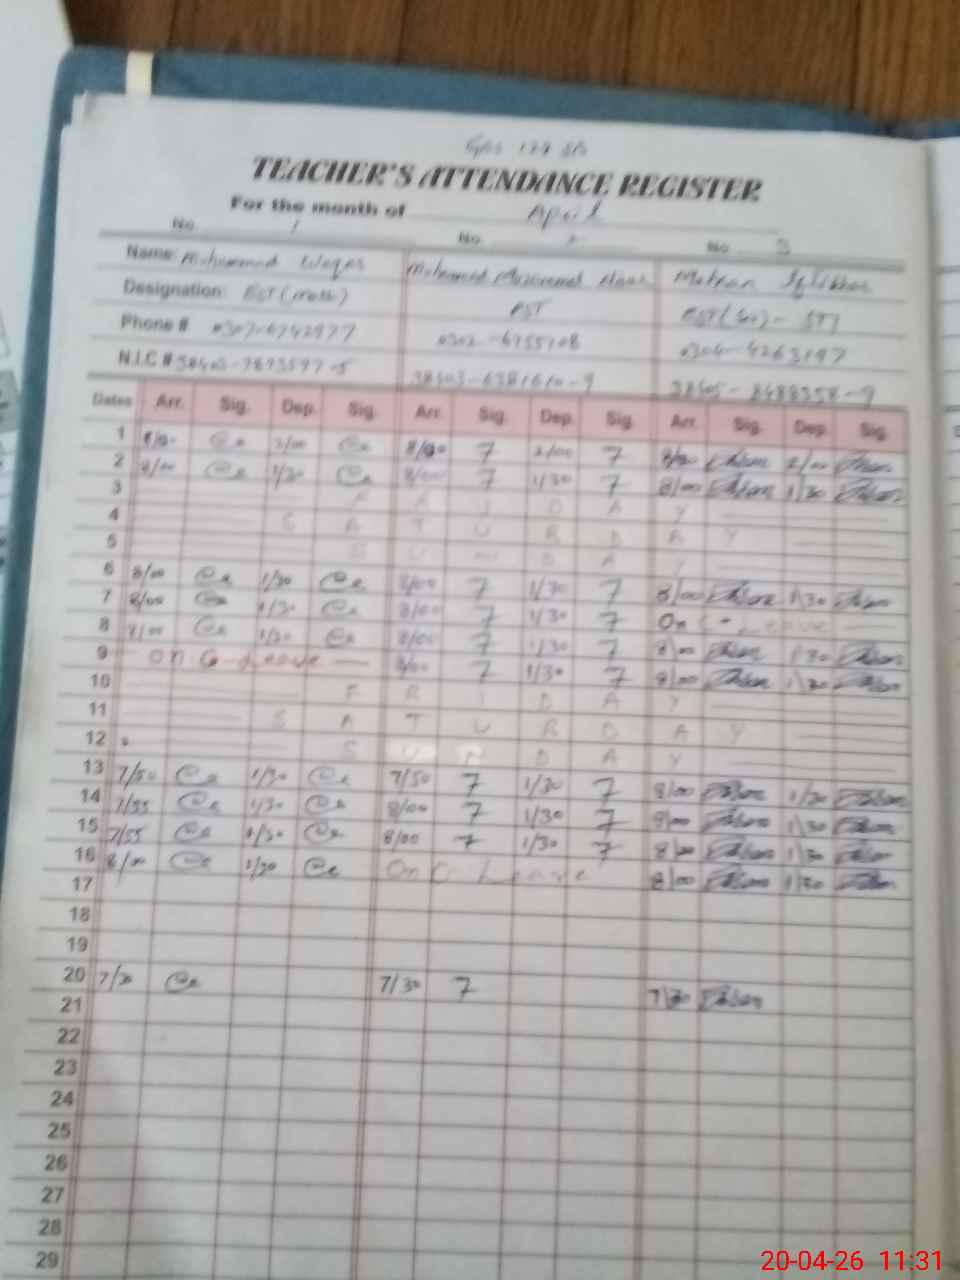 TEACHER'S ATTENDANCE REGISTER
For the month of April
No. 1 No. No. 3
Name: Muhammad Waqas Muhammad
Designation: EST (Math) PST EST (Sci) - STI
Phone # 0307-6742977 0302-6755708 0304-4263197
N.I.C # 38403-7873597-5 38403-6381610-9 38405-8488358-9
Dates Arr. Sig. Dep. Sig. Arr. Sig. Dep. Sig. Arr. Sig. Dep. Sig.
1 2/00 2/00 2/00
2 8/00 1/30 8/00 1/30 8/00 1/30
3 F R I D A Y
4 S A T U R D A Y
5 S U N D A Y
6 8/00 1/30 8/00 1/30 8/00 1/30
7 8/00 1/30 8/00 1/30 On C - Leave
8 8/00 1/30 8/00 1/30 8/00 1/30
9 On C-Leave 8/00 1/30 8/00 1/30
10 F R I D A Y
11 S A T U R D A Y
12 S U N D A Y
13 7/50 1/30 7/50 1/30 8/00 1/30
14 7/55 1/30 8/00 1/30 8/00 1/30
15 7/55 1/30 8/00 1/30 8/00 1/30
16 8/00 1/30 On C Leave 8/00 1/30
17
18
19
20 7/30 7/30 7/30
21
22
23
24
25
26
27
28
29
20-04-26 11:31